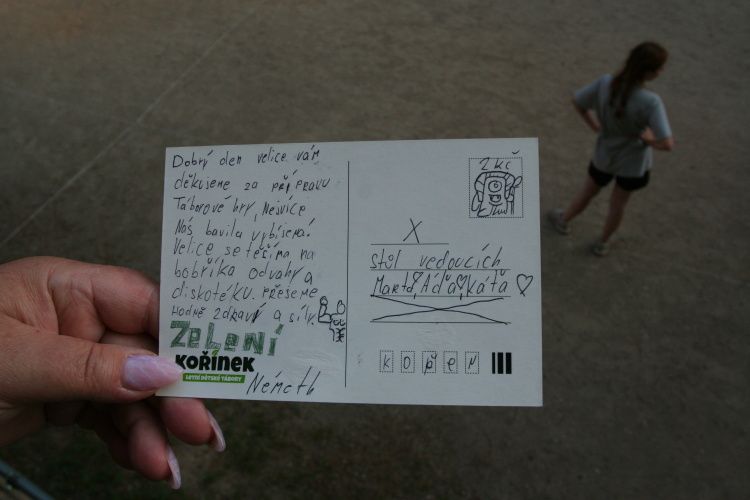 Dobrý den velice vám
děkujeme za přípravu
Táborové hry, Nejvíce
Nás bavila vybíjená!
Velice se těšíme na
bobříka odvahy a
diskotéku. Přejeme
Hodně zdraví a síly.
ZELENÍ
KOŘÍNEK
LETNÍ DĚTSKÉ TÁBORY
Németh
2 Kč
X
stůl vedoucích
Marta, Áďa, Káťa
K O Ř E N